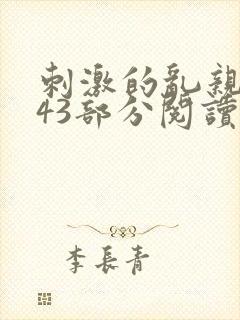 刺激的亂親
43部分閱讀
李長青